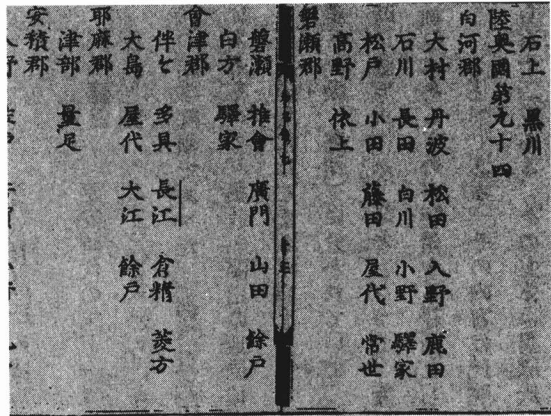 石上 黒川
陸奥國第九十四
白河郡
大村 丹波 松田 入野 鹿田
石川 長田 白川 小野 驛家
松戸 小田 藤田 屋代 常世
高野 依上
磐瀬郡
磐瀬 推會 廣門 山田 餘戸
白方 驛家
會津郡
伴 多具 長江 倉精 菱方
大島 屋代 大江 餘戸
耶麻郡
津部 量足
安積郡
入野